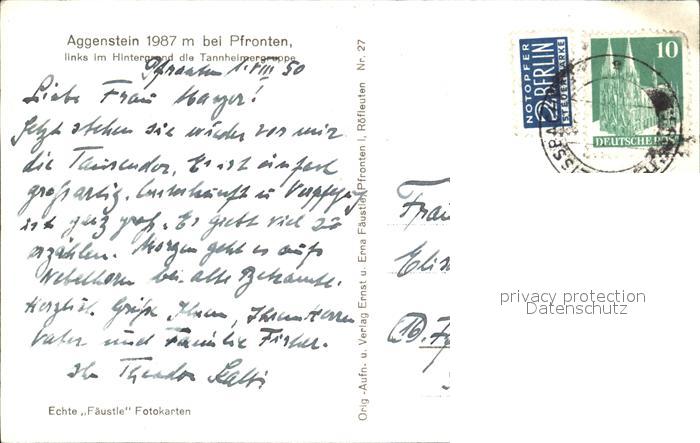 Aggenstein 1987 m bei Pfronten,
links im Hintergrund die Tannheimergruppe
Pfronten 1. VIII 50
Liebe Frau Mayer!
Jetzt stehen sie wieder vor mir
die Es ist einfach
großartig. Unterkunft u Verpflg
ist ganz groß. Es giebt viel zu
erzählen. Morgen geht es aufs
Nebelhorn
Herzlich Grüße Ihnen, Ihrem Herrn
Vater und Familie Fischer.
Ihr Theodor
Echte „Fäustle" Fotokarten
Orig.-Aufn. u. Verlag Ernst u. Erna Fäustle, Pfronten I, Röfleuten Nr. 27
NOTOPFER
2 BERLIN
STEUERMARKE
10
DEUTSCHE POST
Frau
Elis
(16)
privacy protection
Datenschutz